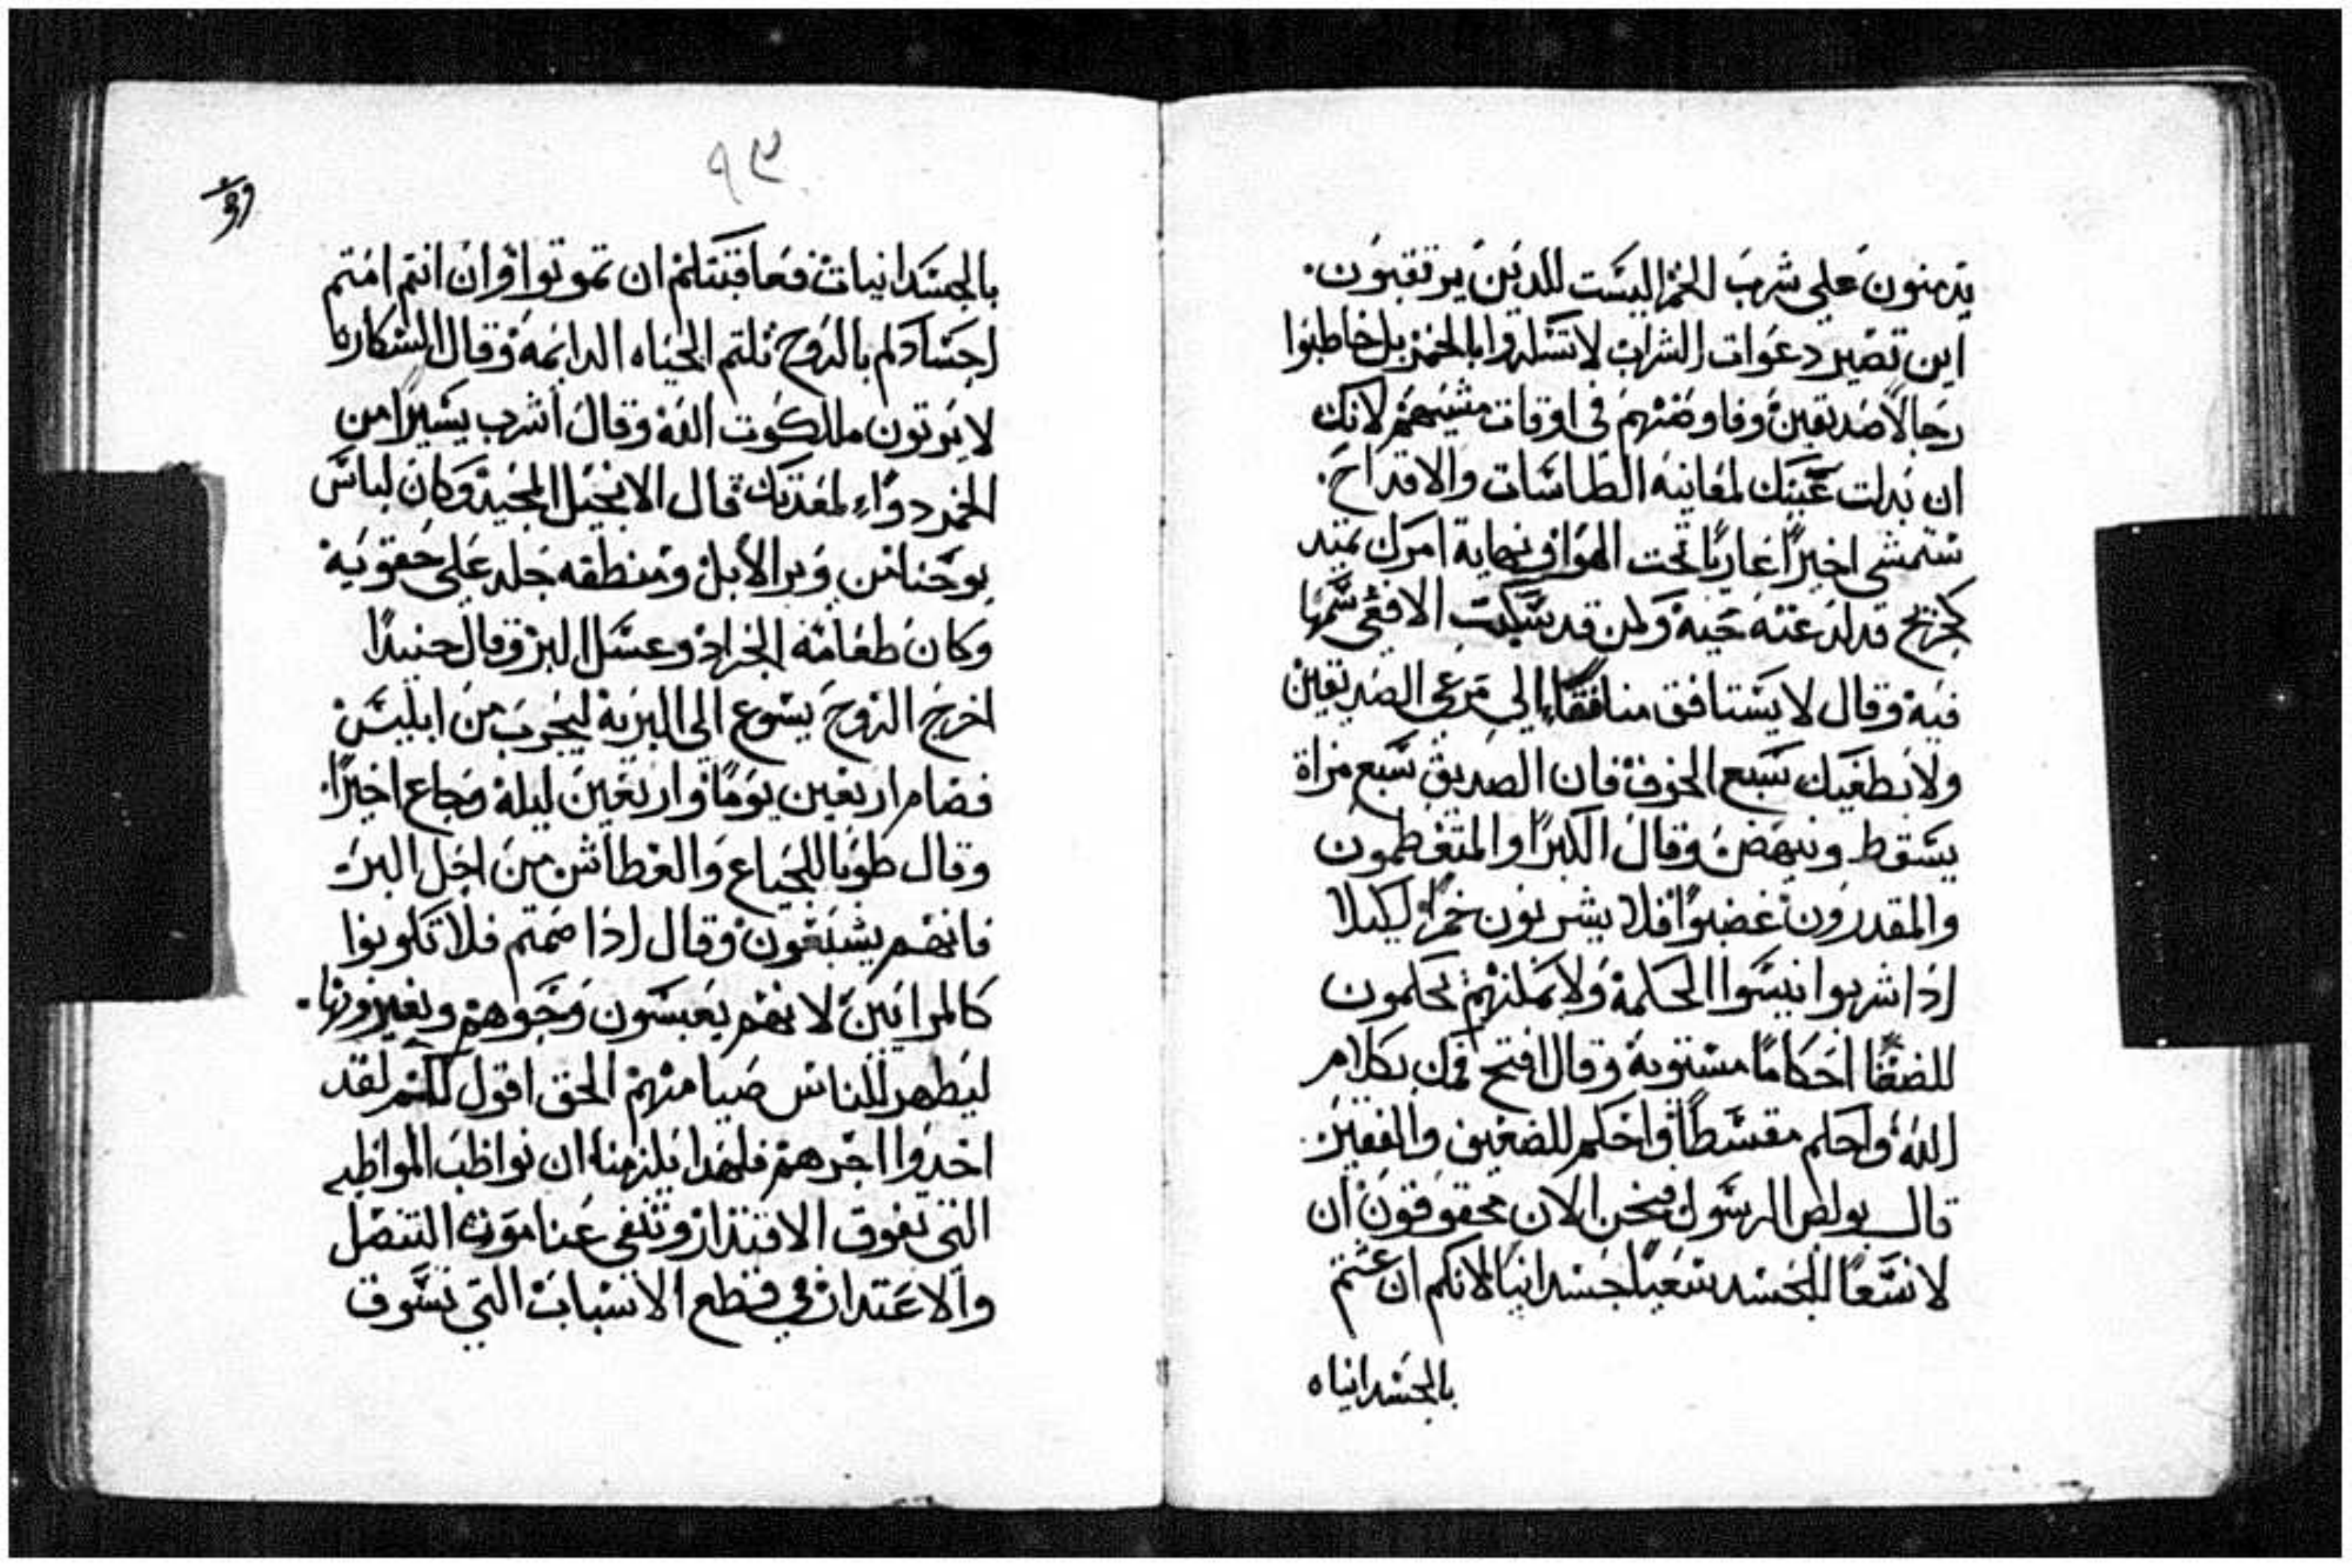 يدمنون على شرب الخمر اليست للدين يرتقبون.
اين تصير دعوات الشراب لا تسكروا بالخمر بل خاطبوا
رجالاً صديقين وفاوضهم في اوقات مشيهم لانك
ان بدلت عينيك لمعاينه الطاسات والاقداح.
ستمشي اخيرًا عاريًا تحت الهوا وفي نهاية امرك تمتد
كجريح قد لدغته حيه ولمن قد سكبت الافعى سمها
فيه وقال لا يستافق منافقًا الى مرعى الصديقين
ولا يطغيك شبع الجوف فان الصديق سبع مراة
يسقط وينهض وقال الكبرا والمتغطمون
والمقدرون غضبوا فلا يشربون خمرًا لكيلا
اذا شربوا ينسوا الحكمة ولا يمكنهم يحكمون
للضعفا احكامًا مستوية وقال افتح فمك بكلام
الله واحكم مقسطًا واحكم للضعيف والفقير.
قال بولص الرسول فنحن الان محقوقون ان
لا نسعا للجسد سعيًا جسدانيًا لانكم ان عشتم
بالجسدانياه
٩٣
بالجسدانيات فعاقبتكم ان تموتوا وان انتم امتم
اجسادكم بالروح نلتم الحياه الدايمة وقال السكارى
لا يرتون ملكوت الله وقال اشرب يسيرًا من
الخمر دواء لمعدتك قال الانجيل المجيد وكان لباس
يوحنا من وبر الابل ومنطقه جلد على حقويه
وكان طعامه الجراد وعسل البر وقال حنيدًا
اخرج الروح يسوع الى البرية ليجرب من ابليس
فصام اربعين يومًا واربعين ليلة وجاع اخيرًا.
وقال طوبا للجياع والعطاش من اجل البر
فانهم يشبعون وقال اذا صمتم فلا تكونوا
كالمرايين لانهم يعبسون وجوههم ويغيرونها.
ليظهر للناس صيامهم الحق اقول لكم لقد
اخدوا اجرهم فلهدا يلزمنا ان نواظب المواظبه
التي تفوق الاقتدار وتنفي عنا موت التنصل
والاعتدار في قطع الاسباب التي تسوق